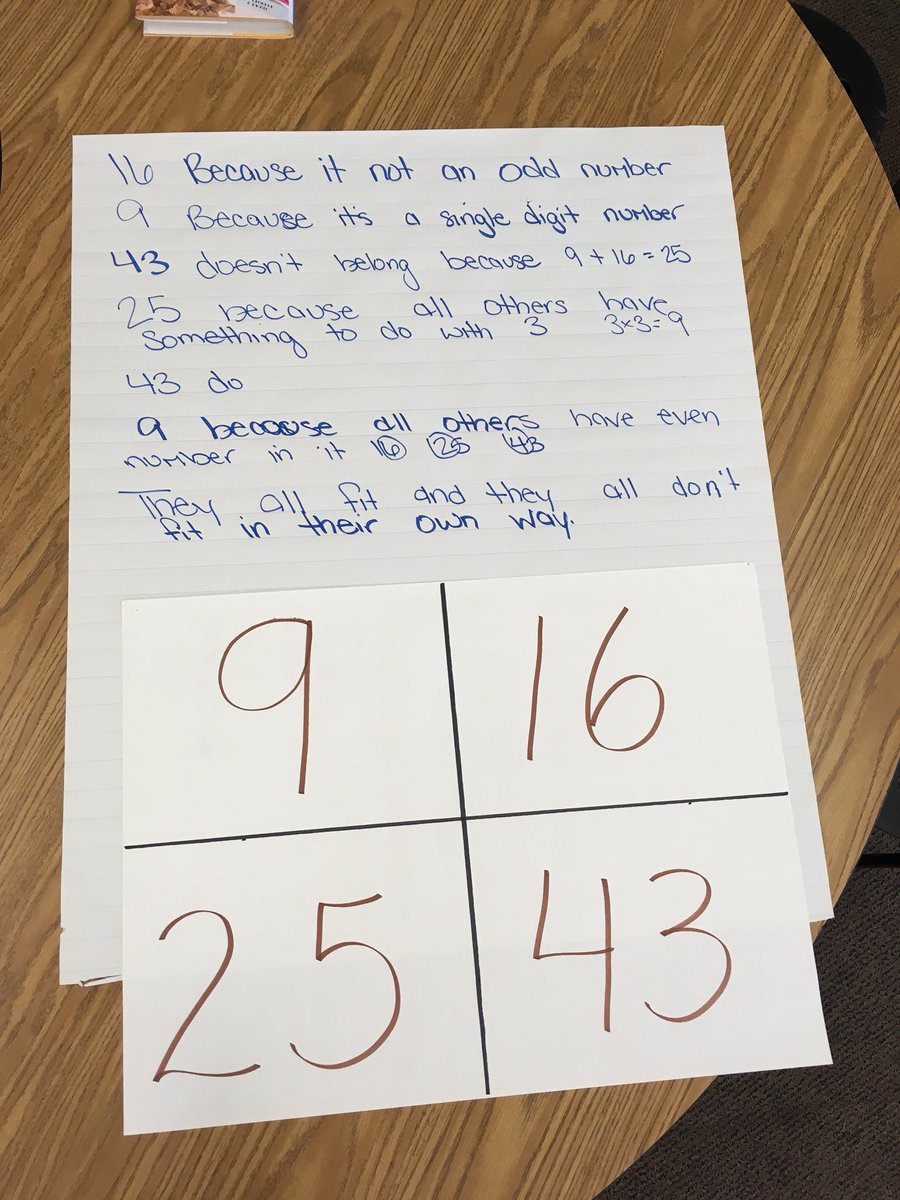 16 Because it not an odd number
9 Because it's a single digit number
43 doesn't belong because 9 + 16 = 25
25 because all others have
something to do with 3 3×3=9
43 do
9 because all others have even
number in it 16 25 43
They all fit and they all don't
fit in their own way.
9 16
25 43